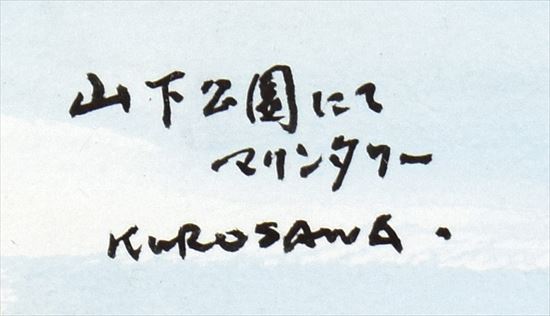 山下公園にて
マリンタワー
KUROSAWA.